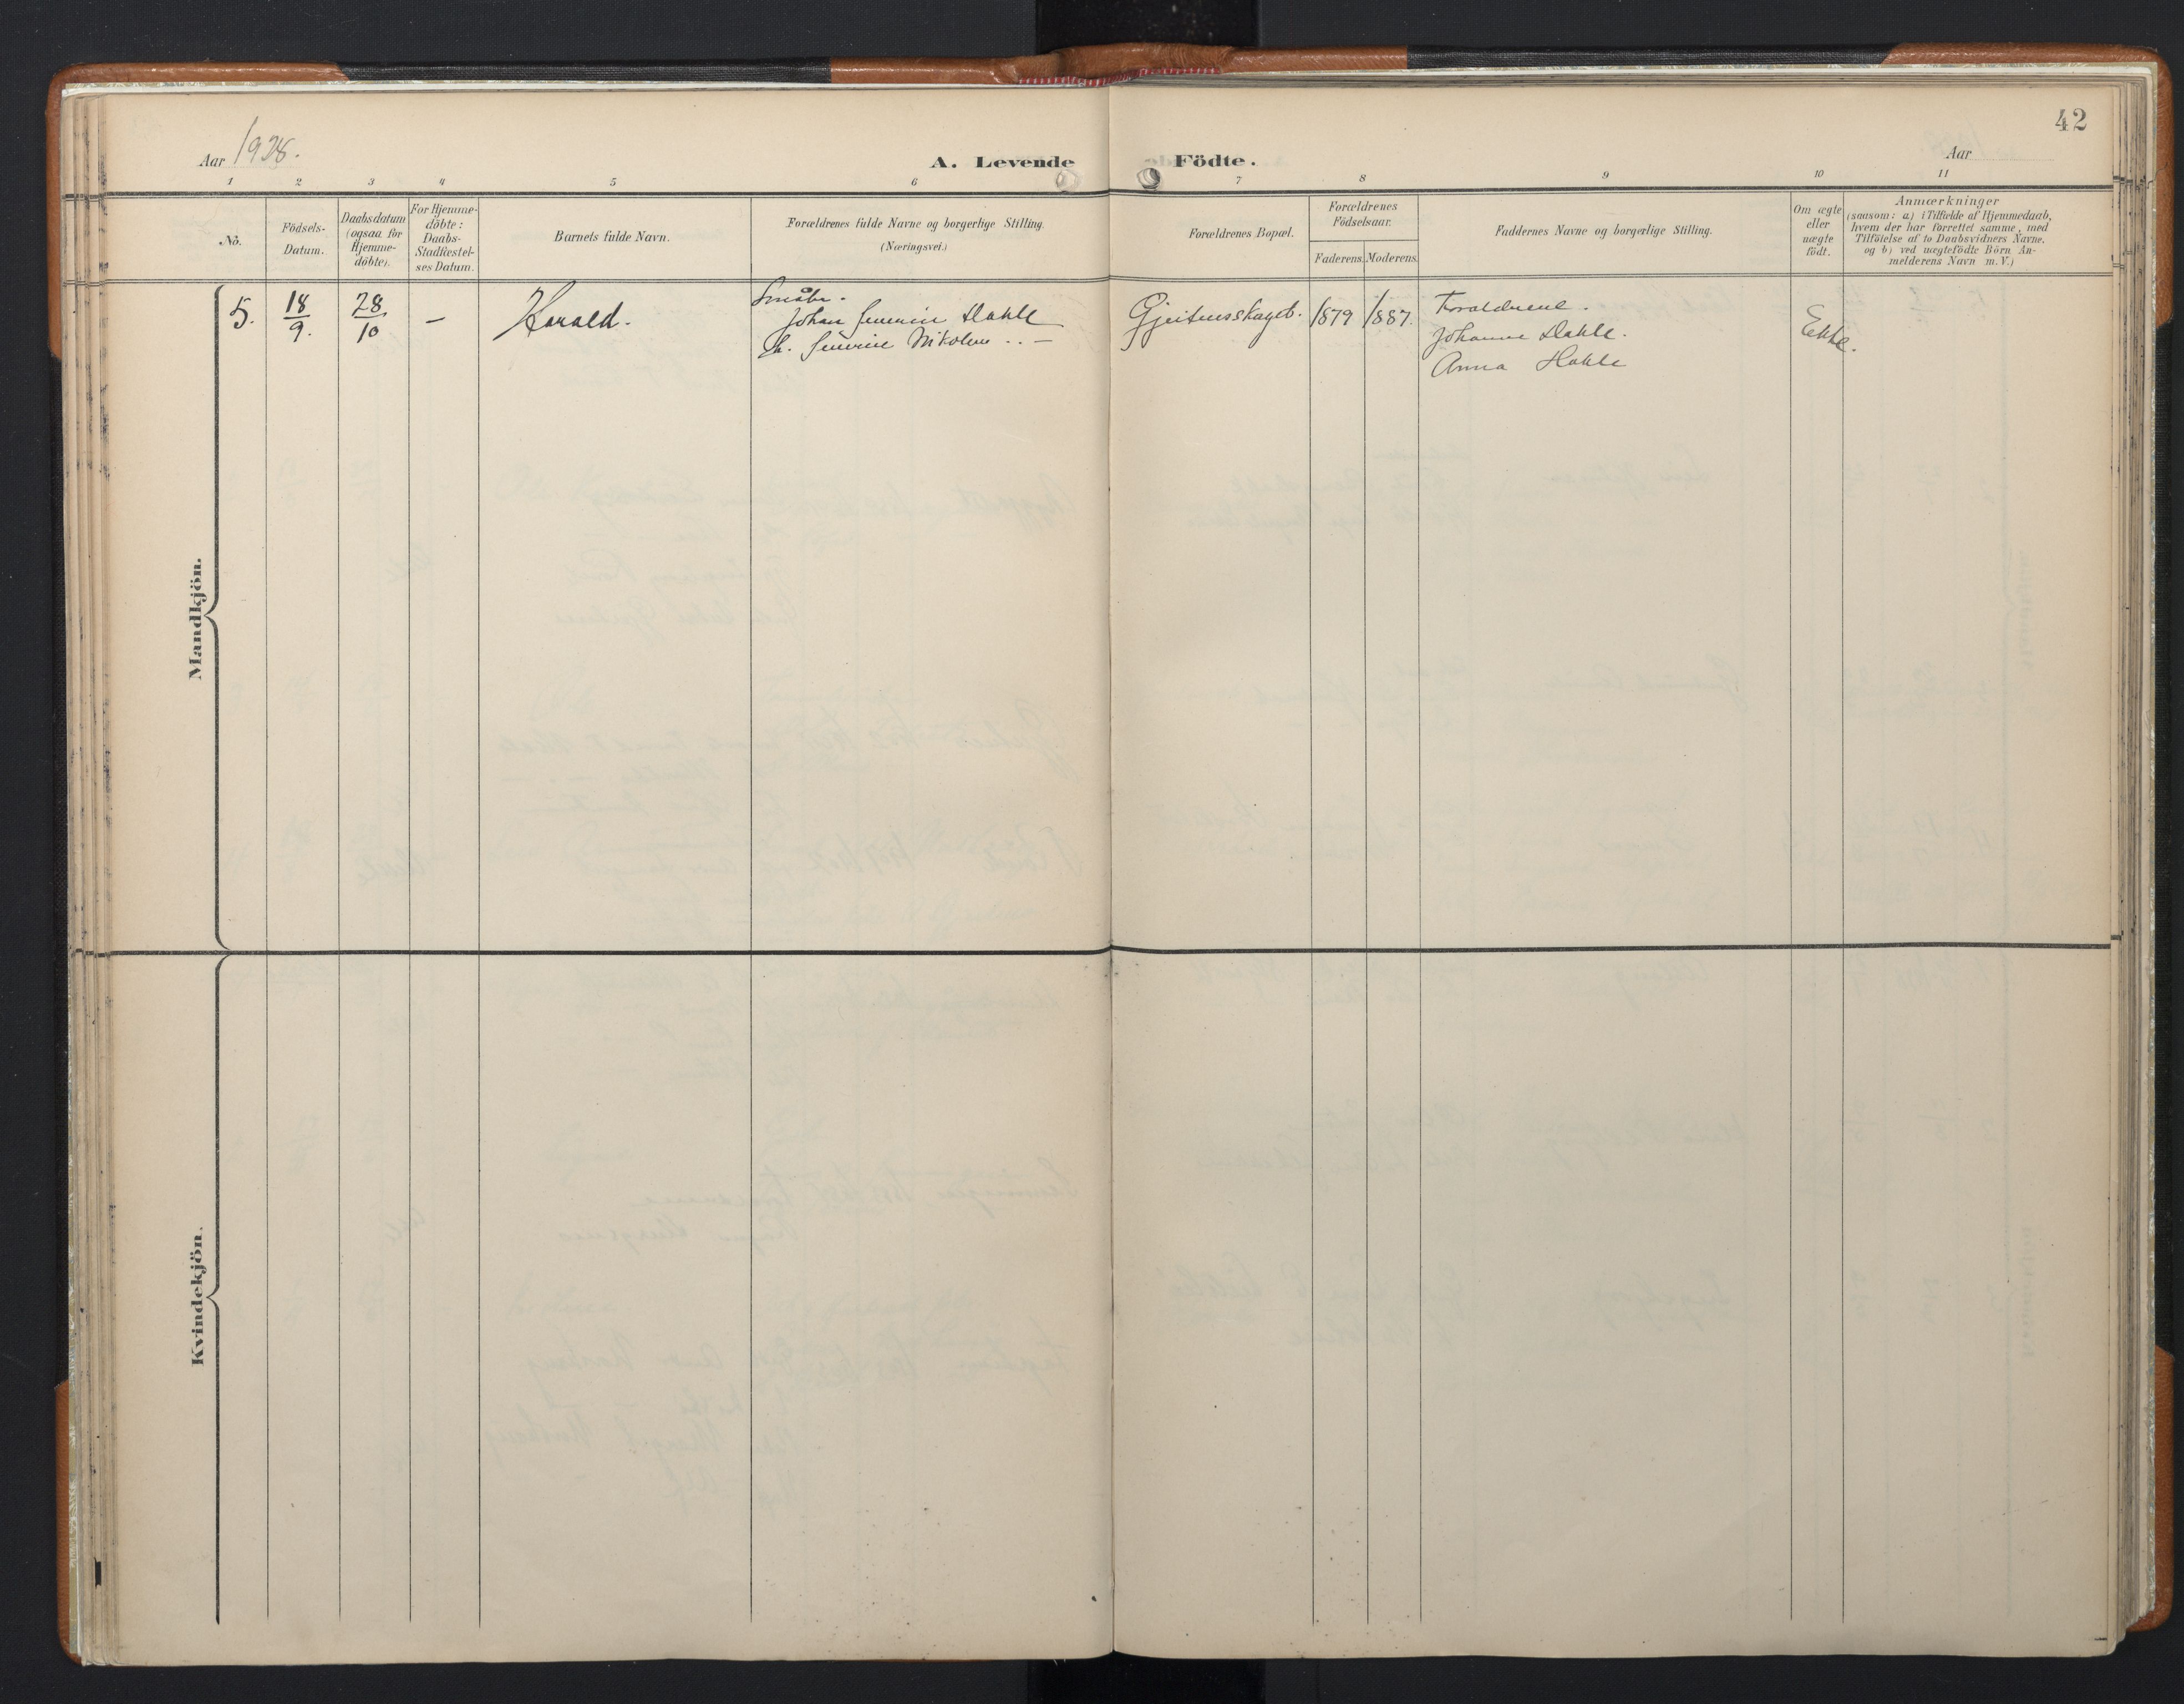 42
Aar 1928.
A. Levende Födte.
Aar
1 2 3 4 5 6 7 8 9 10 11
No.
Födsels-
Datum.
Daabsdatum
(ogsaa for
Hjemme-
döbte).
For Hjemme-
döbte:
Daabs-
Stadfæstel-
ses Datum.
Barnets fulde Navn.
Forældrenes fulde Navne og borgerlige Stilling.
(Næringsvei.)
Forældrenes Bopæl.
Forældrenes
Födselsaar.
Faderens. Moderens.
Faddernes Navne og borgerlige Stilling.
Om ægte
eller
uægte
födt.
Anmærkninger
(saasom: a) i Tilfælde af Hjemmedaab,
hvem der har forrettet samme, med
Tilföielse af to Daabsvidners Navne,
og b) ved uægtefödte Börn An-
melderens Navn m. V.)
Mandkjön.
5.
18
9.
28
10
—
Harald.
Småbr.
Johan Severin Dahle
h. Severine Nikoline .. —
Gjeitnesskaget.
1879
1887.
Foreldrene.
Johanne Dahle.
Anna Dahle
Ekte.
Kvindekjön.